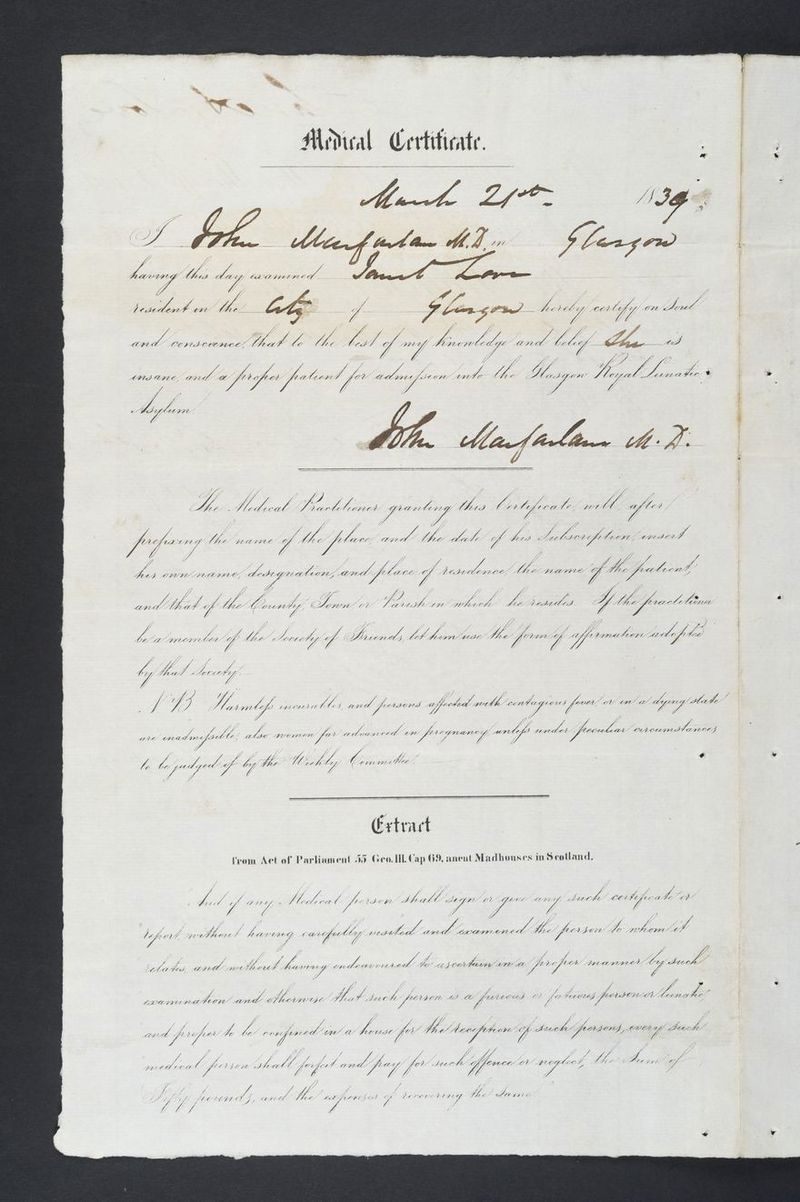 Medical Certificate.
March 21st 1839
I John Macfarlan M.D. in Glasgow
having this day examined Janet Love
resident in the City of Glasgow hereby certify on Soul
and conscience, that to the best of my knowledge and belief She is
insane, and a proper patient for admission into the Glasgow Royal Lunatic
Asylum.
John Macfarlane M.D.
The Medical Practitioner granting this Certificate, will, after
prefixing the name of the place, and the date of his Subscription, insert
his own name, designation, and place of residence, the name of the patient,
and that of the County, Town or Parish in which he resides. If the practitioner
be a member of the Society of Friends, let him use the form of affirmation adopted
by that Society.
N.B. Harmless incurables, and persons affected with contagious fever, or in a dying state
are inadmissible; also women far advanced in pregnancy unless under peculiar circumstances
to be judged of by the Weekly Committee.
Extract
from Act of Parliament 55 Geo. III. Cap 69, anent Madhouses in Scotland.
And if any Medical person shall sign or give any such certificate or
report without having carefully visited and examined the person to whom it
relates, and without having endeavoured to ascertain in a proper manner by such
examination and otherwise that such person is a furious or fatuous person or lunatic,
and proper to be confined in a house for the reception of such persons, every such
medical person shall forfeit and pay for such offence or neglect, the Sum of
Fifty pounds, and the expenses of recovering the same.